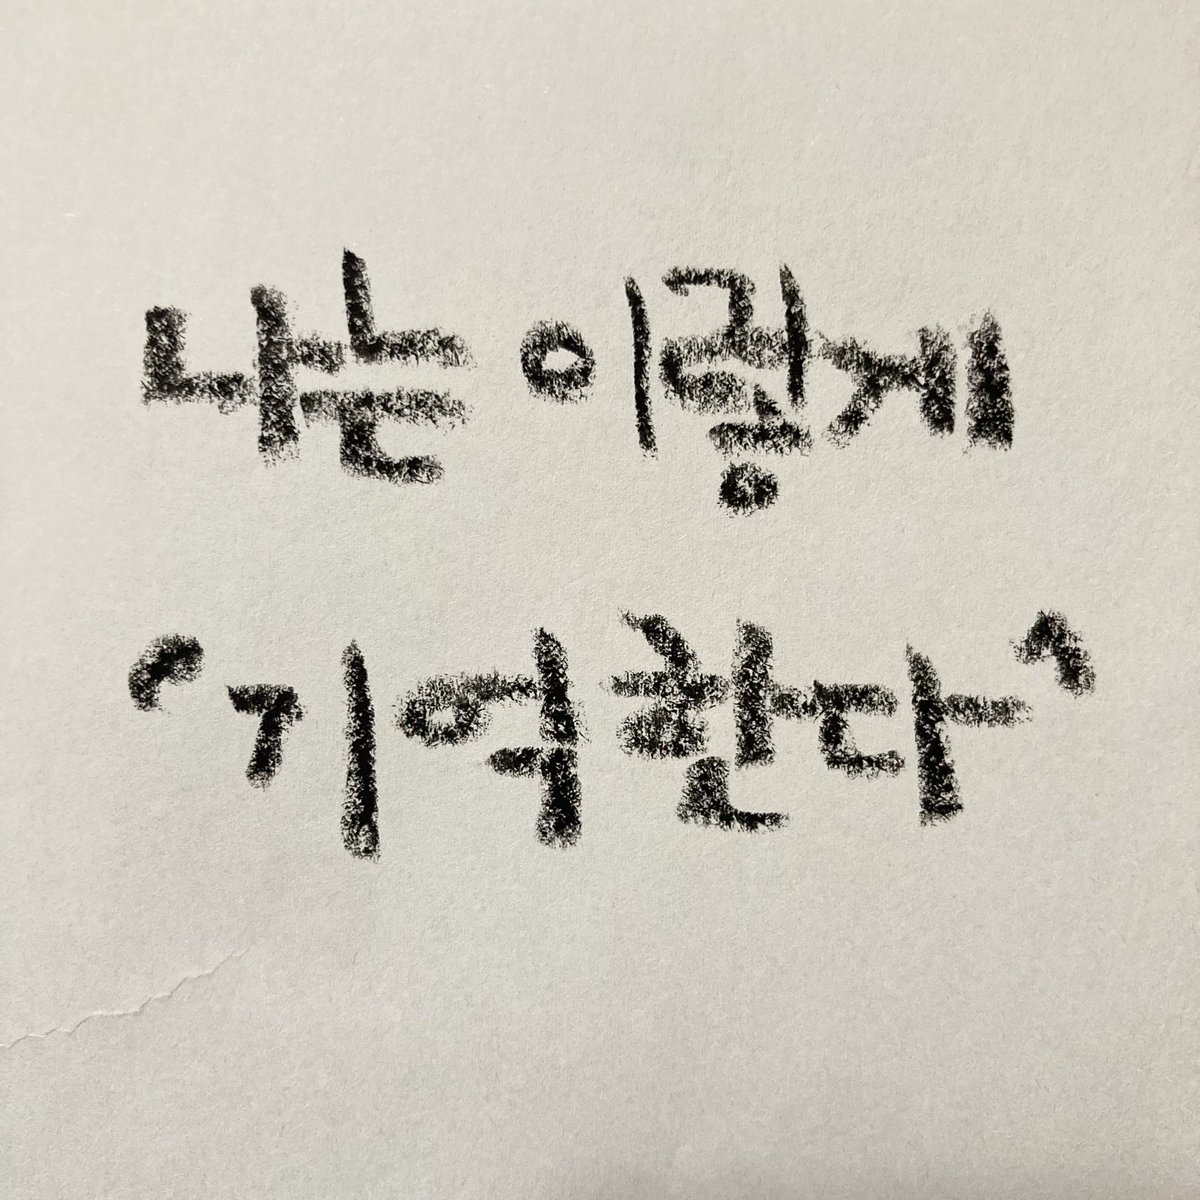 나는 이렇게
‘기억한다’